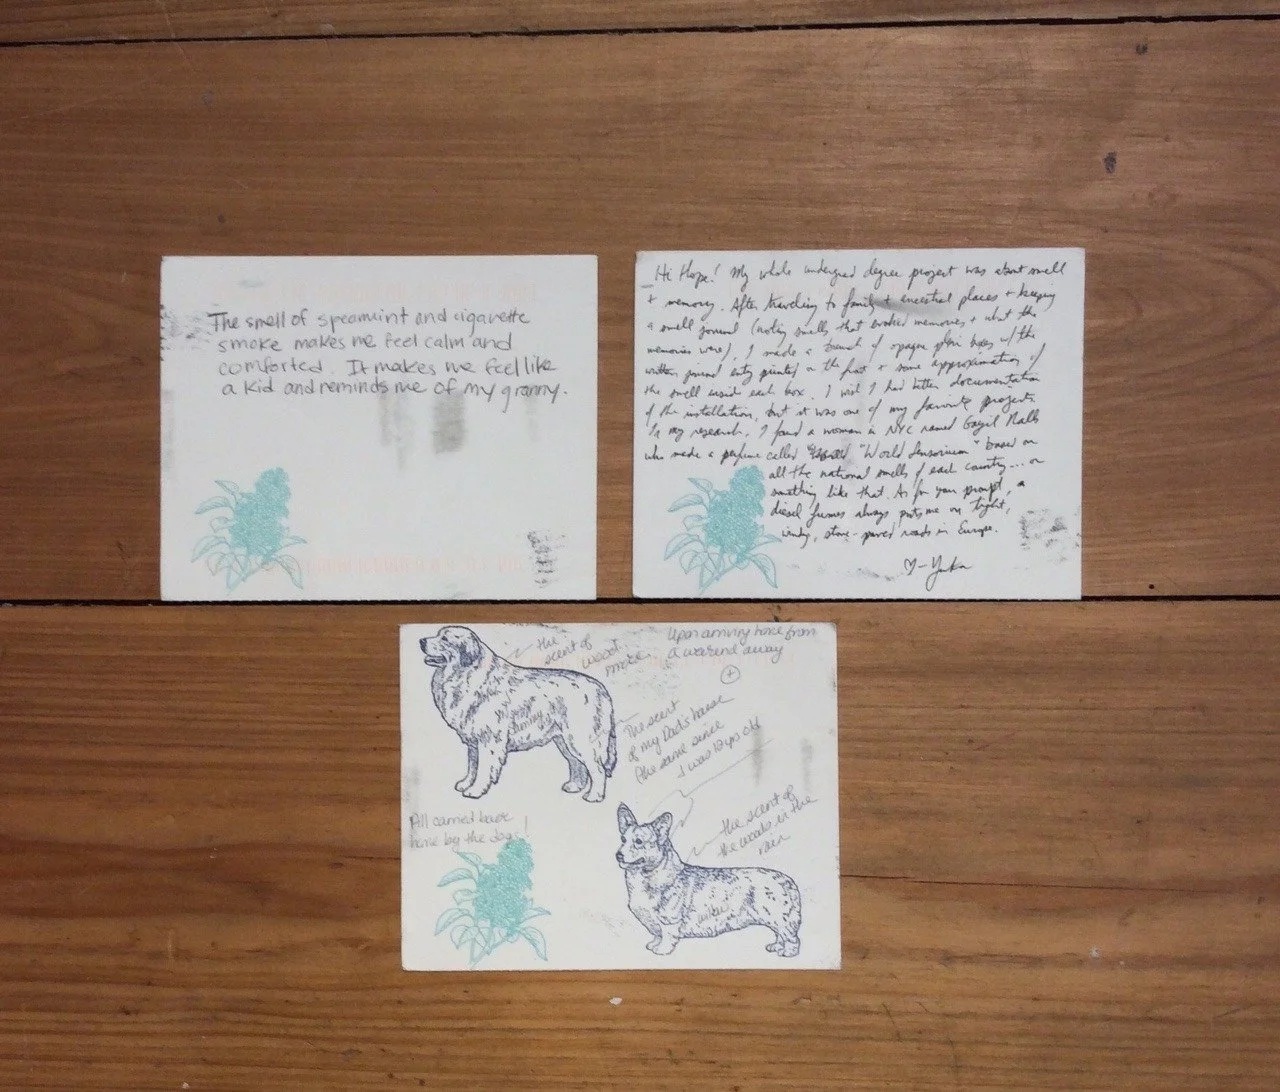 The smell of spearmint and cigarette
smoke makes me feel calm and
comforted. It makes me feel like
a kid and reminds me of my granny.
Hi Hope! My whole undergrad degree project was about smell
+ memory. After traveling to family + ancestral places + keeping
a smell journal (noting smells that evoked memories + what the
memories were), I made a bunch of opaque boxes w/ the
written journal entry printed on the front + some approximation of
the smell inside each box. I wish I had better documentation
of the installation, but it was one of my favorite projects.
In my research, I found a woman in NYC named
who made a perfume called "World Sensorium" based on
all the national smells of each country... or
something like that. As for your prompt,
diesel fumes always puts me on tight,
windy, stone-paved roads in Europe.
♡-
the
scent of
wood
smoke
Upon arriving home from
a weekend away
+
The scent
of my Dad's house
(the same since
I was 10 yrs old
the scent of
the woods in the
rain
All carried back
home by the dogs!